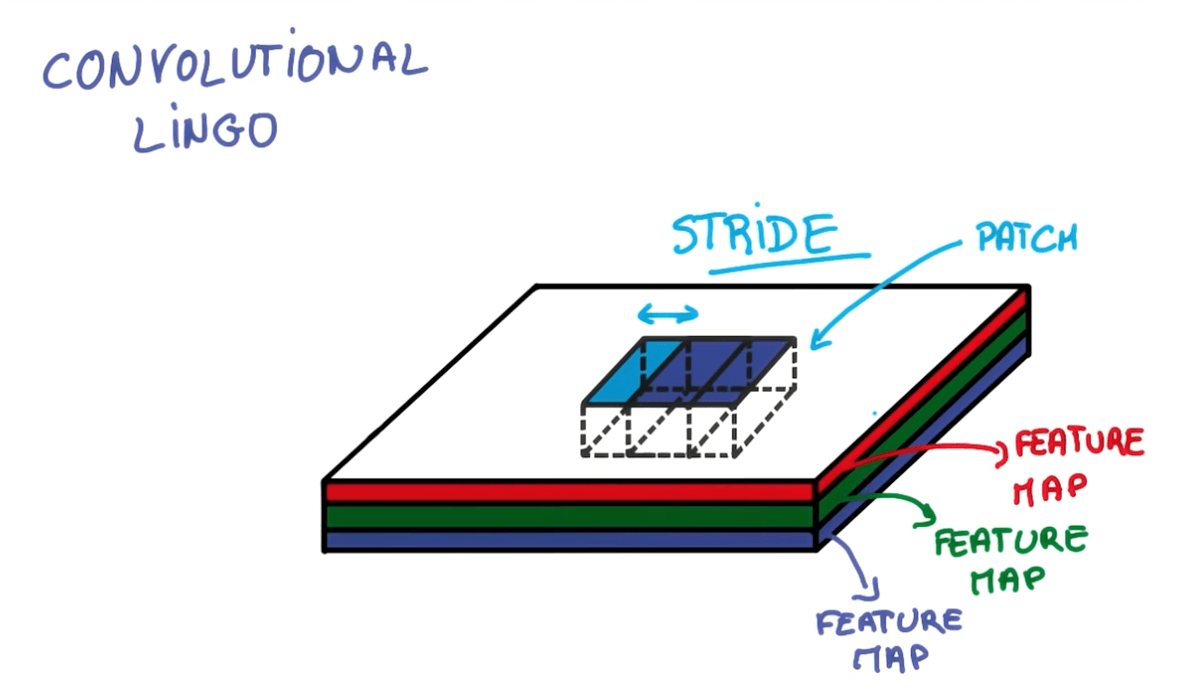 CONVOLUTIONAL
LiNGO
STRiDE
PATCH
FEATURE
MAP
FEATURE
MAP
FEATURE
MAP